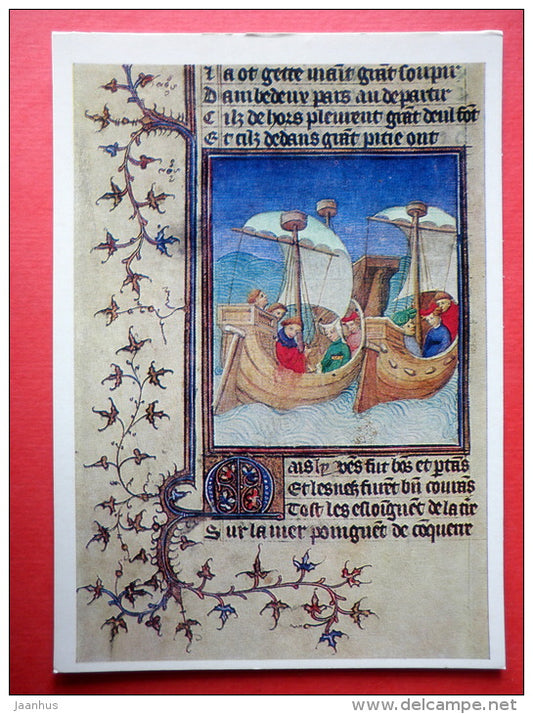 La ot gette maīt grāt souspir
Dambedeux pars au departir
Cilz de hors pleurent grāt deul fōt
Et cilz dedans grāt pitie ont
Mais ly vēs fut bōs et ptās
Et les nefz furēt bn̄ courās
Tost les esloinguēt de la t're
Sur la mer poinguēt de cōquerre
jaanhus
delcampe.net